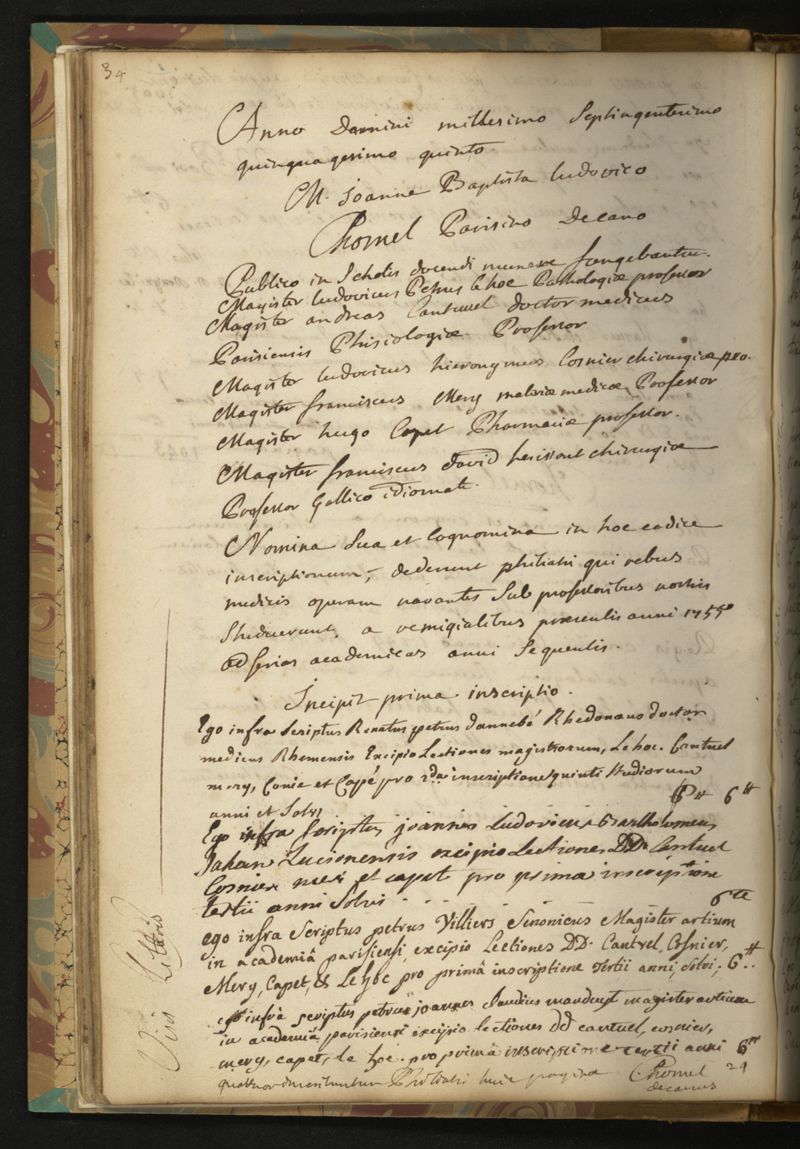 34
Anno Domini millesimo Septingentesimo
quinquagesimo quinto
M. Joanne Baptista Ludovico
Chomel Parisino Decano
Publico in Scholis docendi munere fungebantur.
Magister Ludovicus Petrus lehoc Pathologiæ professor
Magister andreas Cantuuel doctor medicus
Parisiensis Phisiologiæ Professor
Magister Ludovicus hieronymus Cosnier chirurgiæ pro.
Magister franciscus Mery materiæ medicæ Professor
Magister hugo Capet Pharmaciæ professor.
Magister franciscus david herissant chirurgiæ
Professor Gallico idiomate.
Nomina sua et Cognomina in hoc codice
inscriptionum, dederunt philiatri qui rebus
medicis operam navantes Sub professoribus nostris
Studuerunt, a remigialibus præsentis anni 1755°
ad ferias academicas anni Sequentis.
Incipit prima inscriptio.
Ego infra Scriptus Renatus petrus dannebé Rhedonæus doctor
medicus Rhemensis Excipio Lectiones magistrorum, Lehoc. Cantuel
mery, Conie et Capé pro 2da inscriptione quinti studiorum
anni et Solvi 6tt 6tt
Ego infra scriptus joannes Ludovicus Bartholomeus
Jahan Lucionensis excipio Lectiones DD. Cantuel
Cosnier meri et capet pro prima inscriptione
tertii anni Solvi . . . . . 6tt
ego infra Scriptus petrus Villiers Sinonicus Magister artium
in academiâ parisiensi excipio Lectiones DD. Cantvel, Cosnier,
Mery, Capet, & Lehoc pro primâ inscriptione tertii anni, solvi, 6tt
ego infrà scriptus petrus joannes claudius mauduyt magister artium
in academiâ parisiensi excipio lectiones dd cantuel, cosnier,
mery, capet, le hoc. pro primâ inscriptione tertii anni 6tt
quattuor Philiatri huic paginæ Chomel 24
decanus
Visis Litteris